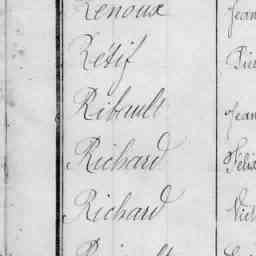 Renoux Jean
Rétif
Ribault Jean
Richard Félix
Richard Vict